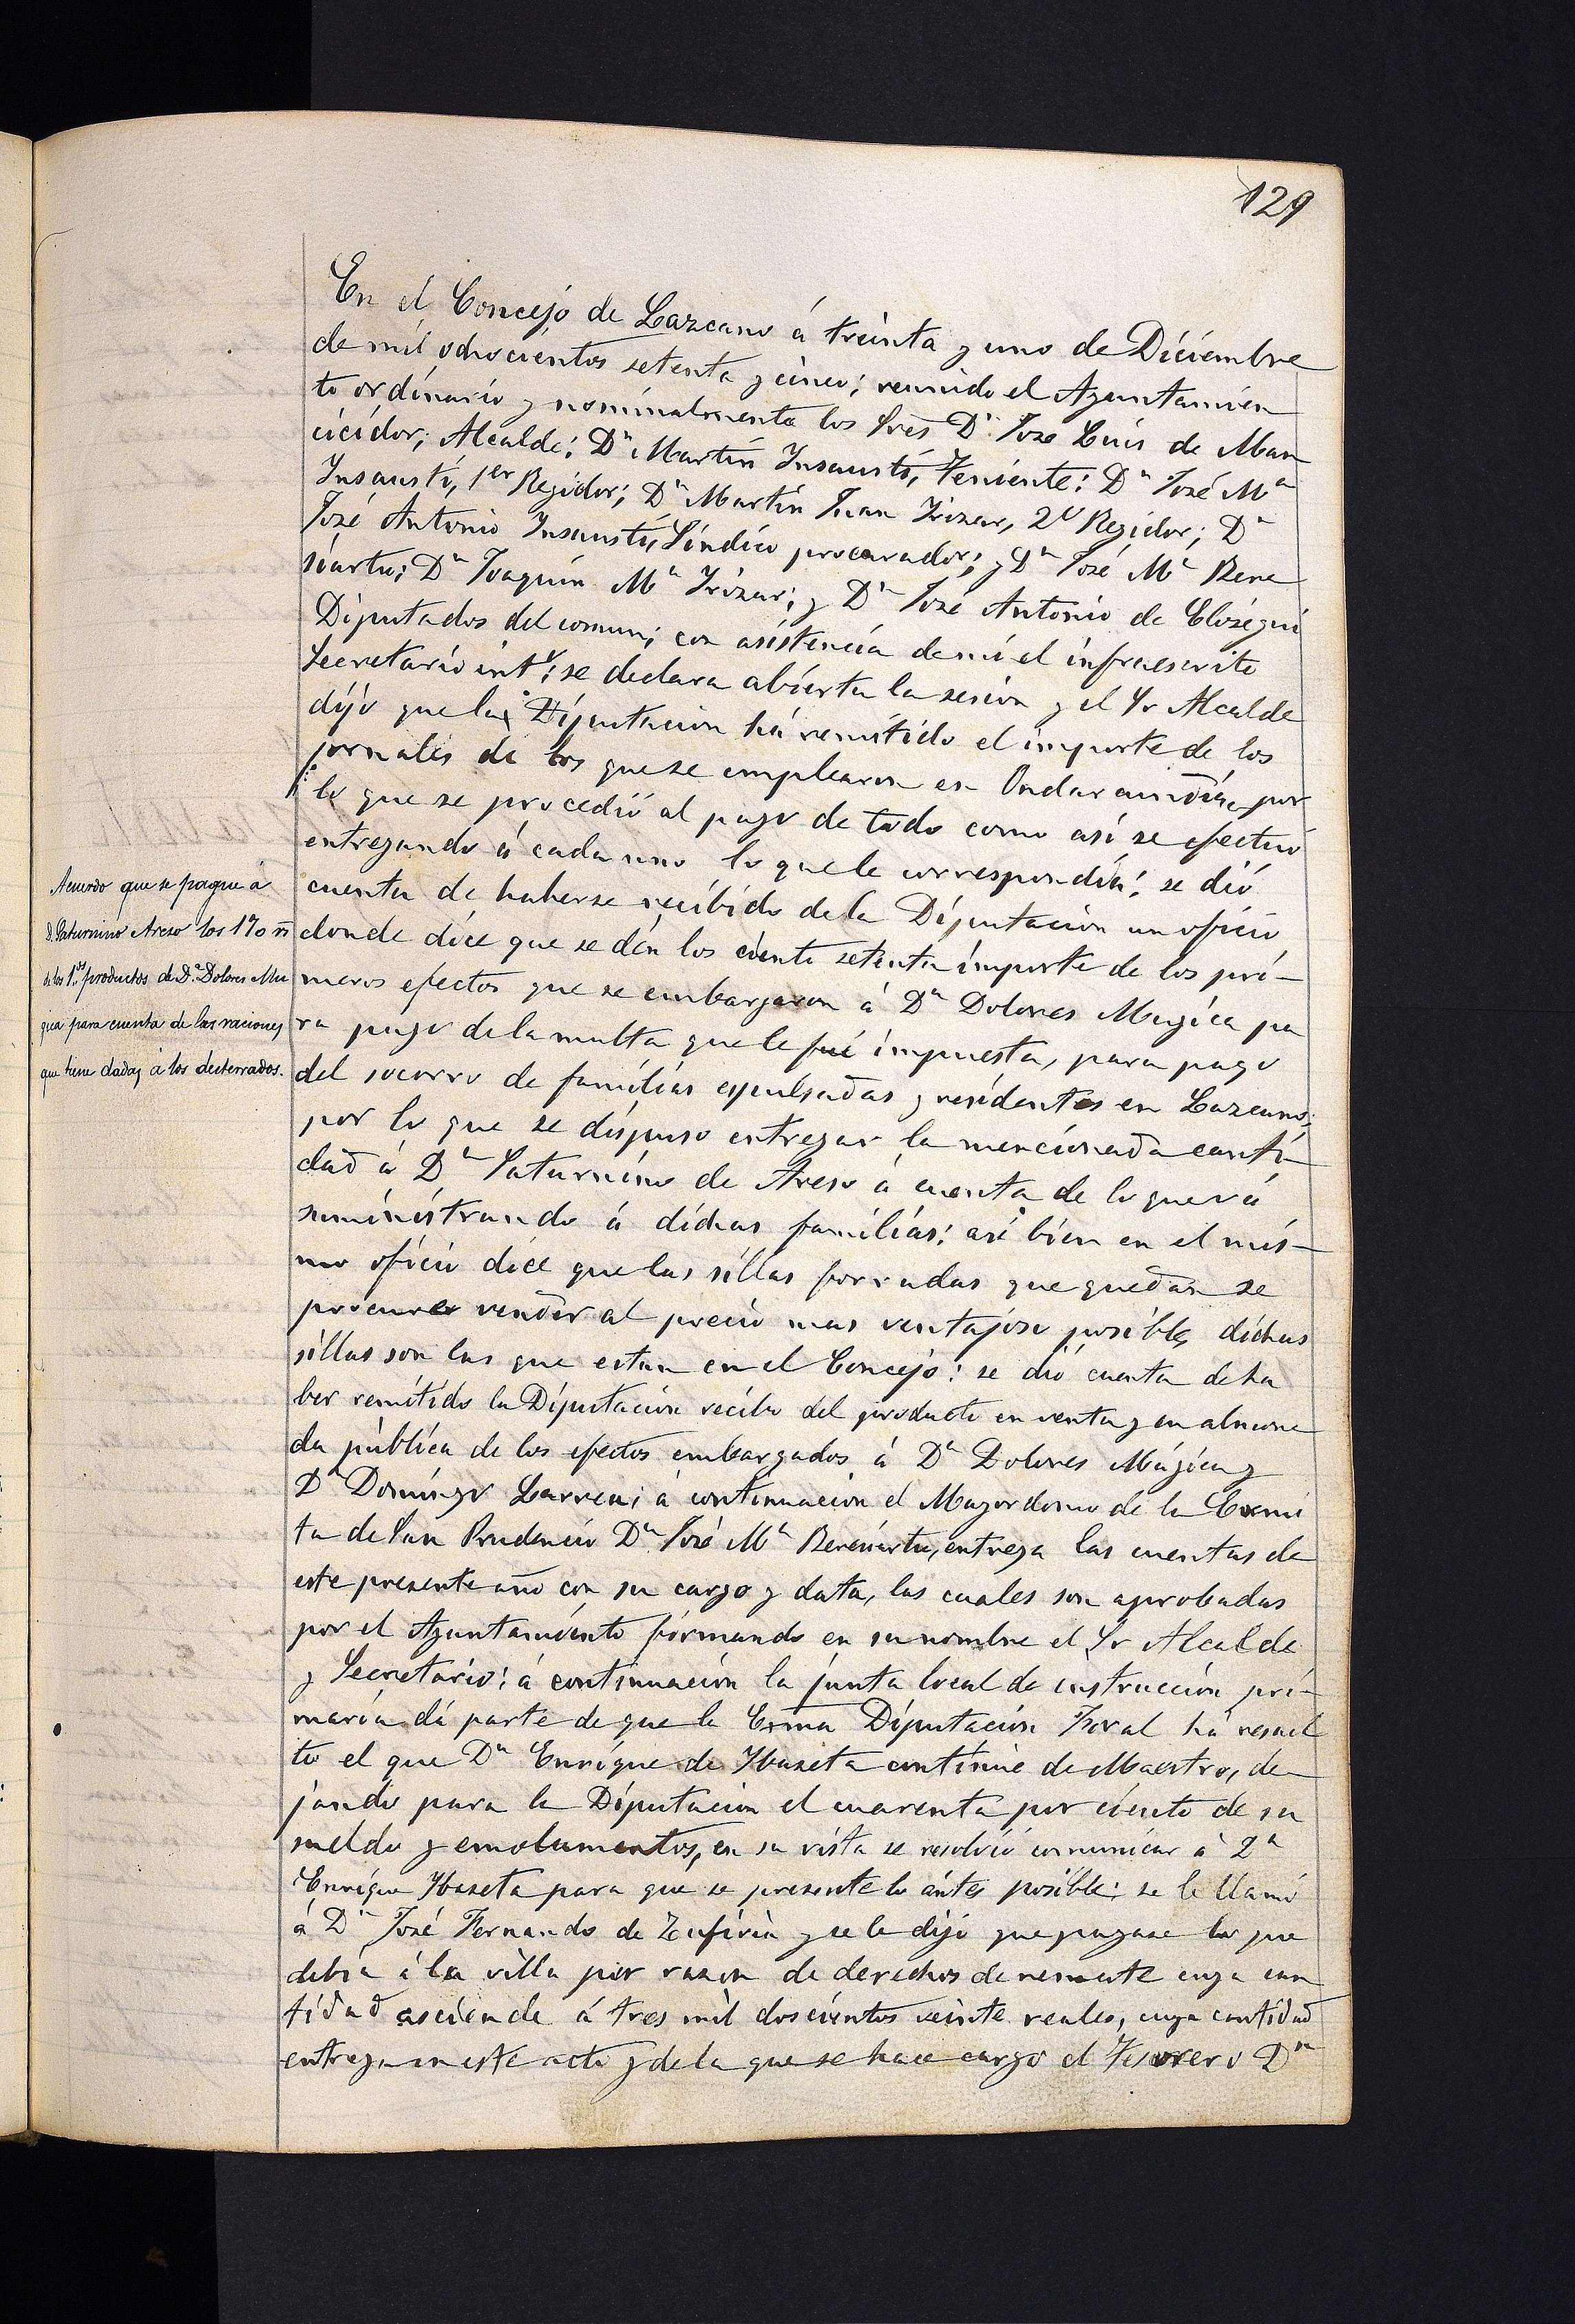 129
En el Concejo de Lazcano á treinta y uno de Diciembre
de mil ochocientos setenta y cinco; reunido el Ayuntamien
to ordinario y nominalmente los Sres Dn Jose Luis de Man
cicidor, Alcalde; Dn Martin Insausti, Teniente; Dn José Ma
Insausti, 1er Regidor; Dn Martin Juan Irizar, 2º Regidor; Dn
José Antonio Insausti, Síndico procurador; y Dn José Ma Bere
siartu; Dn Joaquin Ma Irizar; y Dn José Antonio de Elosegui
Diputados del comun; con asistencia de mi el infraescrito
Secretario intº; se declara abierta la sesion y el Sr Alcalde
dijo que la Diputacion há remitido el importe de los
jornales de los que se emplearon en por
lo que se procedió al pago de todo como asi se efectuó
entregando á cada uno lo que le correspondia; se dió
cuenta de haberse recibido de la Diputacion un oficio
donde dice que se dén los ciento setenta importe de los pri-
meros efectos que se embargaron á Da Dolores Mugica pa
ra pago de la multa que le fué impuesta, para pago
del socorro de familias espulsadas y residentes en Lazcano;
por lo que se dispuso entregar la mencionada canti-
dad á Dn Saturnino de Areso á cuenta de lo que vá
suministrando á dichas familias; asi bien en el mis-
mo oficio dice que las sillas forradas que quedan se
procure vender al precio mas ventajoso posible, dichas
sillas son las que estan en el Concejo: se dió cuenta de ha
ber remitido la Diputacion recibo del producto en venta y en almone
da pública de los efectos embargados á Da Dolores Múgica y
Dn Domingo Larrea; á continuacion el Mayordomo de la Ermi
ta de San Prudencio Dn José Ma Beresiartu, entrega las cuentas de
este presente año con su cargo y data, las cuales son aprobadas
por el Ayuntamiento firmando en su nombre el Sr Alcalde
y Secretario; á continuacion la junta local de instruccion pri-
maria dá parte de que la Exma Diputacion Foral há resuel
to el que Dn Enrique de Ibaseta continúe de Maestro, de
jando para la Diputacion el cuarenta por ciento de su
sueldo y emolumentos, en su vista se resolvió comunicar á Dn
Enrique Ibaseta para que se presente lo ántes posible; se le llamó
á Dn José Fernando de Zufiria y se le dijo que pagase lo que
debia á la villa por razon de derechos de remate cuya can
tidad asciende á tres mil doscientos veinte reales, cuya cantidad
entrega en este acto y de la que se hace cargo el Tesorero Dn
Acuerdo que se pague á
D. Saturnino Areso los 170 rs
de los 1os productos de Da Dolores Mu
gica para cuenta de las raciones
que tiene dadas á los desterrados.